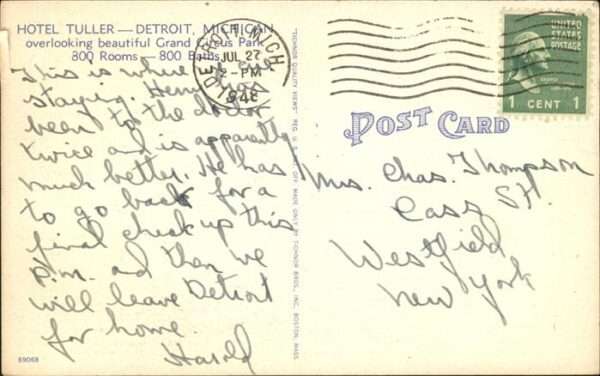 HOTEL TULLER — DETROIT, MICHIGAN
overlooking beautiful Grand Circus Park
800 Rooms — 800 Baths
This is where we are
staying. Henry has
been to the doctor
twice and is apparently
much better. He has
to go back for a
final check up this
P.M. and then we
will leave Detroit
for home.
Harold
69068
"TICHNOR QUALITY VIEWS" REG. U.S. PAT. OFF. MADE ONLY BY TICHNOR BROS., INC. BOSTON, MASS.
DETROIT, MICH.
JUL 27
2-PM
1948
UNITED
STATES
POSTAGE
1 CENT 1
POST CARD
Mrs. Chas. Thompson
Cass St.
Westfield
New York